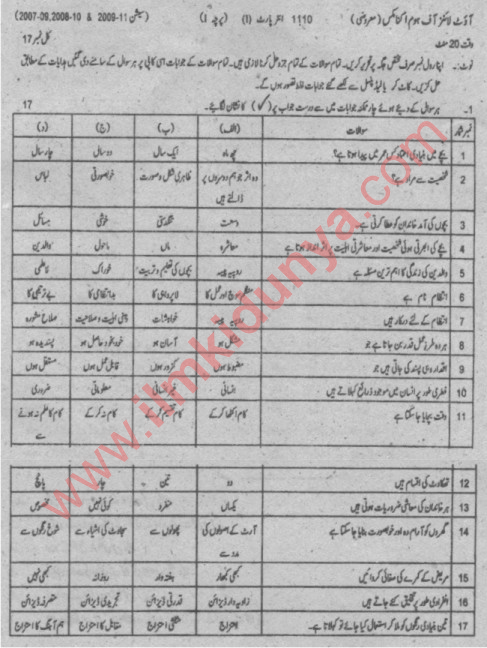 آؤٹ لائنز آف ہوم اکنامکس (معروضی) 1110 انٹر پارٹ (I) (پرچہ I) (سیشن 2007-09,2008-10 & 2009-11)
وقت 20 منٹ کل نمبر 17
نوٹ:- اپنا رول نمبر صرف مختص جگہ پر تحریر کریں۔ تمام سوالات کے تمام جزو حل کرنا لازمی ہیں۔ تمام سوالات کے جوابات اسی کاپی پر ہر سوال کے سامنے دی گئیں ہدایات کے مطابق
حل کریں۔ کاٹ کر یا لیڈ پنسل سے لکھے گئے جوابات غلط تصور ہوں گے۔
1- ہر سوال کے دیئے ہوئے چار ممکنہ جوابات میں سے درست جواب پر (✓) کا نشان لگائیے۔ 17
نمبر شمار سوالات (الف) (ب) (ج) (د)
1 بچے میں بنیادی اعتماد کس عمر میں پیدا ہوتا ہے؟ چھ ماہ ایک سال دو سال چار سال
2 شخصیت سے مراد ہے؟ وہ اثر جو ہم دوسروں پر ڈالتے ہیں ظاہری شکل و صورت خوبصورتی لباس
3 بچوں کی آمد خاندان کو عطا کرتی ہے۔ وسعت تنگدستی خوشی مسائل
4 بچے کی ابھرتی ہوئی شخصیت اور معاشرتی اہلیت پر اثر انداز ہوتا ہے معاشرہ ماں ماحول والدین
5 والدین کی زندگی کا اہم ترین مسئلہ ہے روپیہ پیسہ بچوں کی تعلیم و تربیت خوراک لاعلمی
6 انتظام نام ہے سوچ اور عمل کا لاپرواہی کا بدانتظامی کا بے ترتیبی کا
7 انتظام کے لئے درکار ہیں روپیہ پیسہ خواہشات ذہنی اہلیت و صلاحیت صلاح مشورہ
8 ہر وہ طرز عمل قدر بن جاتا ہے جو مشکل ہو آسان ہو خود بخود حاصل ہو پسندیدہ ہو
9 اقدار وہی پسند کی جاتی ہیں جو مضبوط ہوں کمزور ہوں قابل عمل ہوں مستقل ہوں
10 فطری طور پر انسان میں موجود ذرائع کہلاتے ہیں انسانی غیر انسانی معلوماتی ضروری
11 وقت بچایا جا سکتا ہے کام اکٹھا کر کے کام تقسیم کر کے کام نہ کر کے کام کا علم نہ ہونے سے
12 تھکاوٹ کی اقسام ہیں دو تین چار پانچ
13 ہر خاندان کی معاشی ضروریات ہوتی ہیں یکساں منفرد کوئی نہیں مخصوص
14 گھروں کو آرام دہ اور خوبصورت بنایا جا سکتا ہے آرٹ کے اصولوں کی مدد سے پھولوں سے سجاوٹ کی اشیاء سے شوخ رنگوں سے
15 مریض کے کمرے کی صفائی کروائیں کبھی کبھار ہفتہ وار روزانہ کبھی نہیں
16 انفرادی طور پر تخلیق کئے جاتے ہیں زاویہ دار ڈیزائن قدرتی ڈیزائن تجریدی ڈیزائن متصرفہ ڈیزائن
17 تین بنیادی رنگوں کو ملا کر استعمال کیا جائے تو کہلاتا ہے۔ امتزاج مثلثی امتزاج متقابل کا امتزاج ہم آہنگ کا امتزاج
www.ilmkidunya.com